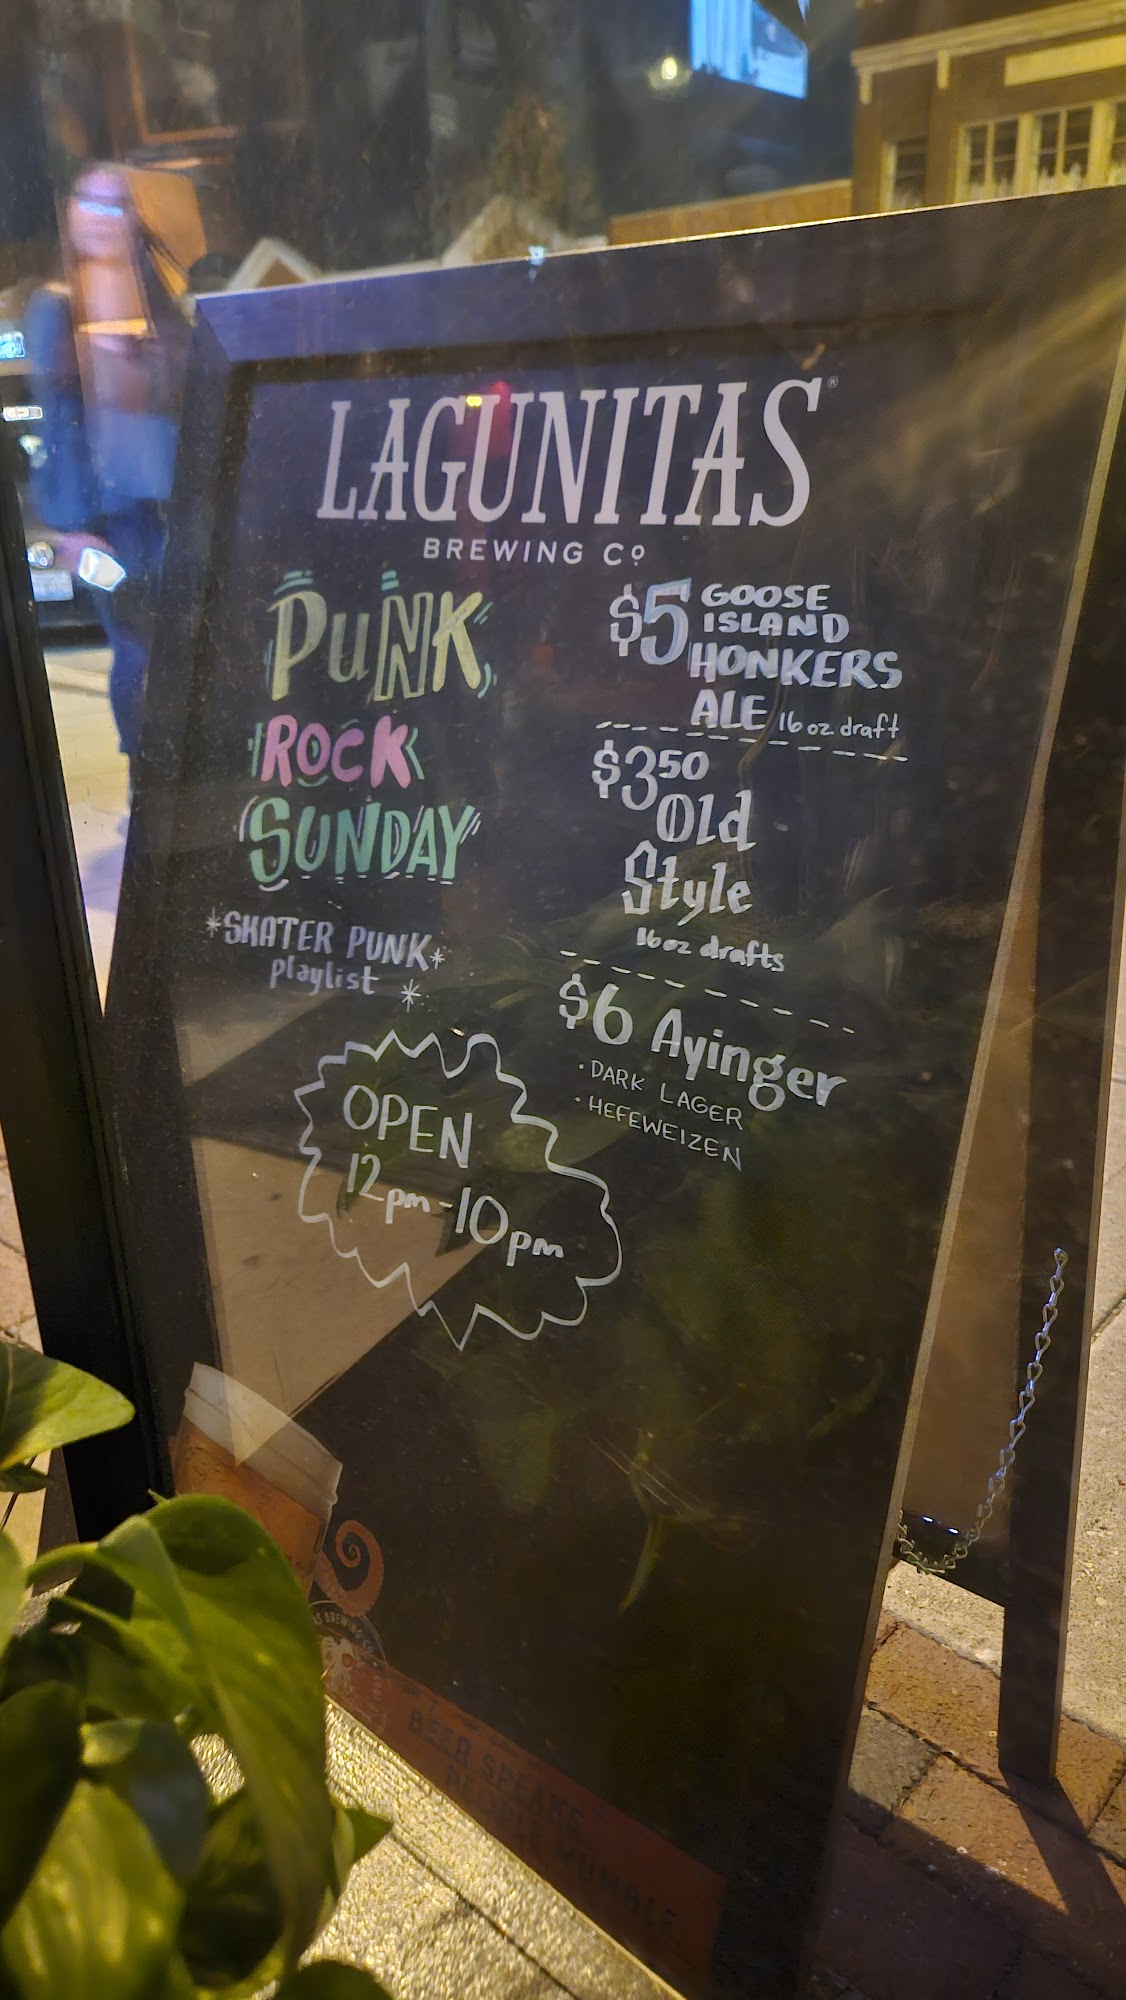 LAGUNITAS®
BREWING Cº
PUNK
ROCK
SUNDAY
*SKATER PUNK*
playlist *
OPEN
12pm-10pm
$5 GOOSE
ISLAND
HONKERS
ALE 16 oz draft
$3 50
Old
Style
16oz drafts
$6 Ayinger
· DARK LAGER
· HEFEWEIZEN
BREWING CO
BEER SPEAKS
MUMBLE